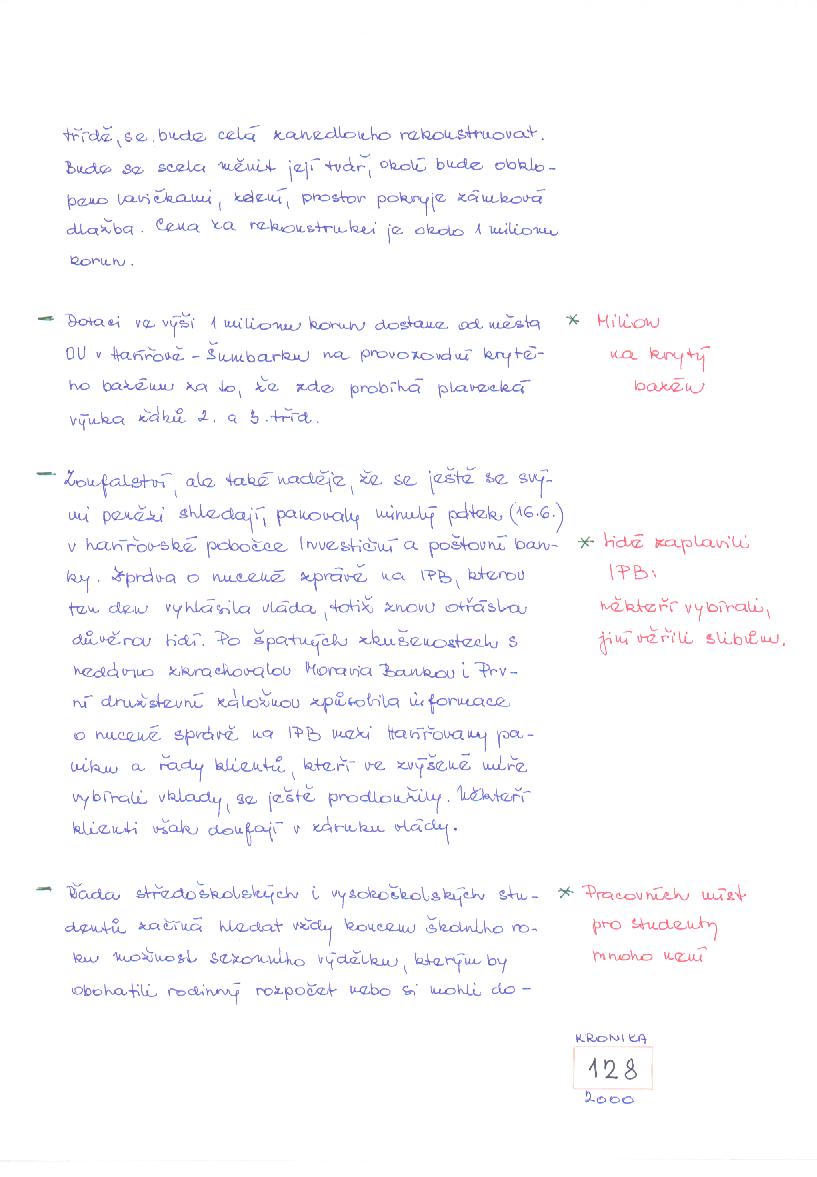 třídě, se bude celá zanedlouho rekonstruovat.
Bude se scela měnit její tvář, okolí bude obklo-
peno lavičkami, zdení, prostor pokryje zámková
dlažba. Cena za rekonstrukci je okolo 1 milionu
korun.
- Dotaci ve výši 1 milionu korun dostane od města
OÚ v Havířově - Šumbarku na provozování kryté-
ho bazénu za to, že zde probíhá plavecká
výuka žáků 2. a 3. tříd.
* Milion
na krytý
bazén
- Zoufalství, ale také naděje, že se ještě se svý-
mi penězi shledají, panovaly minulý pátek (16.6.)
v havířovské pobočce Investiční a poštovní ban-
ky. Zpráva o nucené zprávě na IPB, kterou
ten den vyhlásila vláda, totiž znovu otřásla
důvěrou lidí. Po špatných zkušenostech s
nedávno zkrachovalou Moravia Bankou i Prv-
ní družstevní záložnou způsobila informace
o nucené správě na IPB mezi Havířovany pa-
niku a řady klientů, kteří ve zvýšené míře
vybírali vklady, se ještě prodloužily. Někteří
klienti však doufají v záruku vlády.
* Lidé zaplavili
IPB:
někteří vybírali,
jiní věřili slibům.
- Řada středoškolských i vysokoškolských stu-
dentů začíná hledat vždy koncem školního ro-
ku možnost sezonního výdělku, kterým by
obohatili rodinný rozpočet nebo si mohli do-
* Pracovních míst
pro studenty
mnoho není
KRONIKA
128
2000